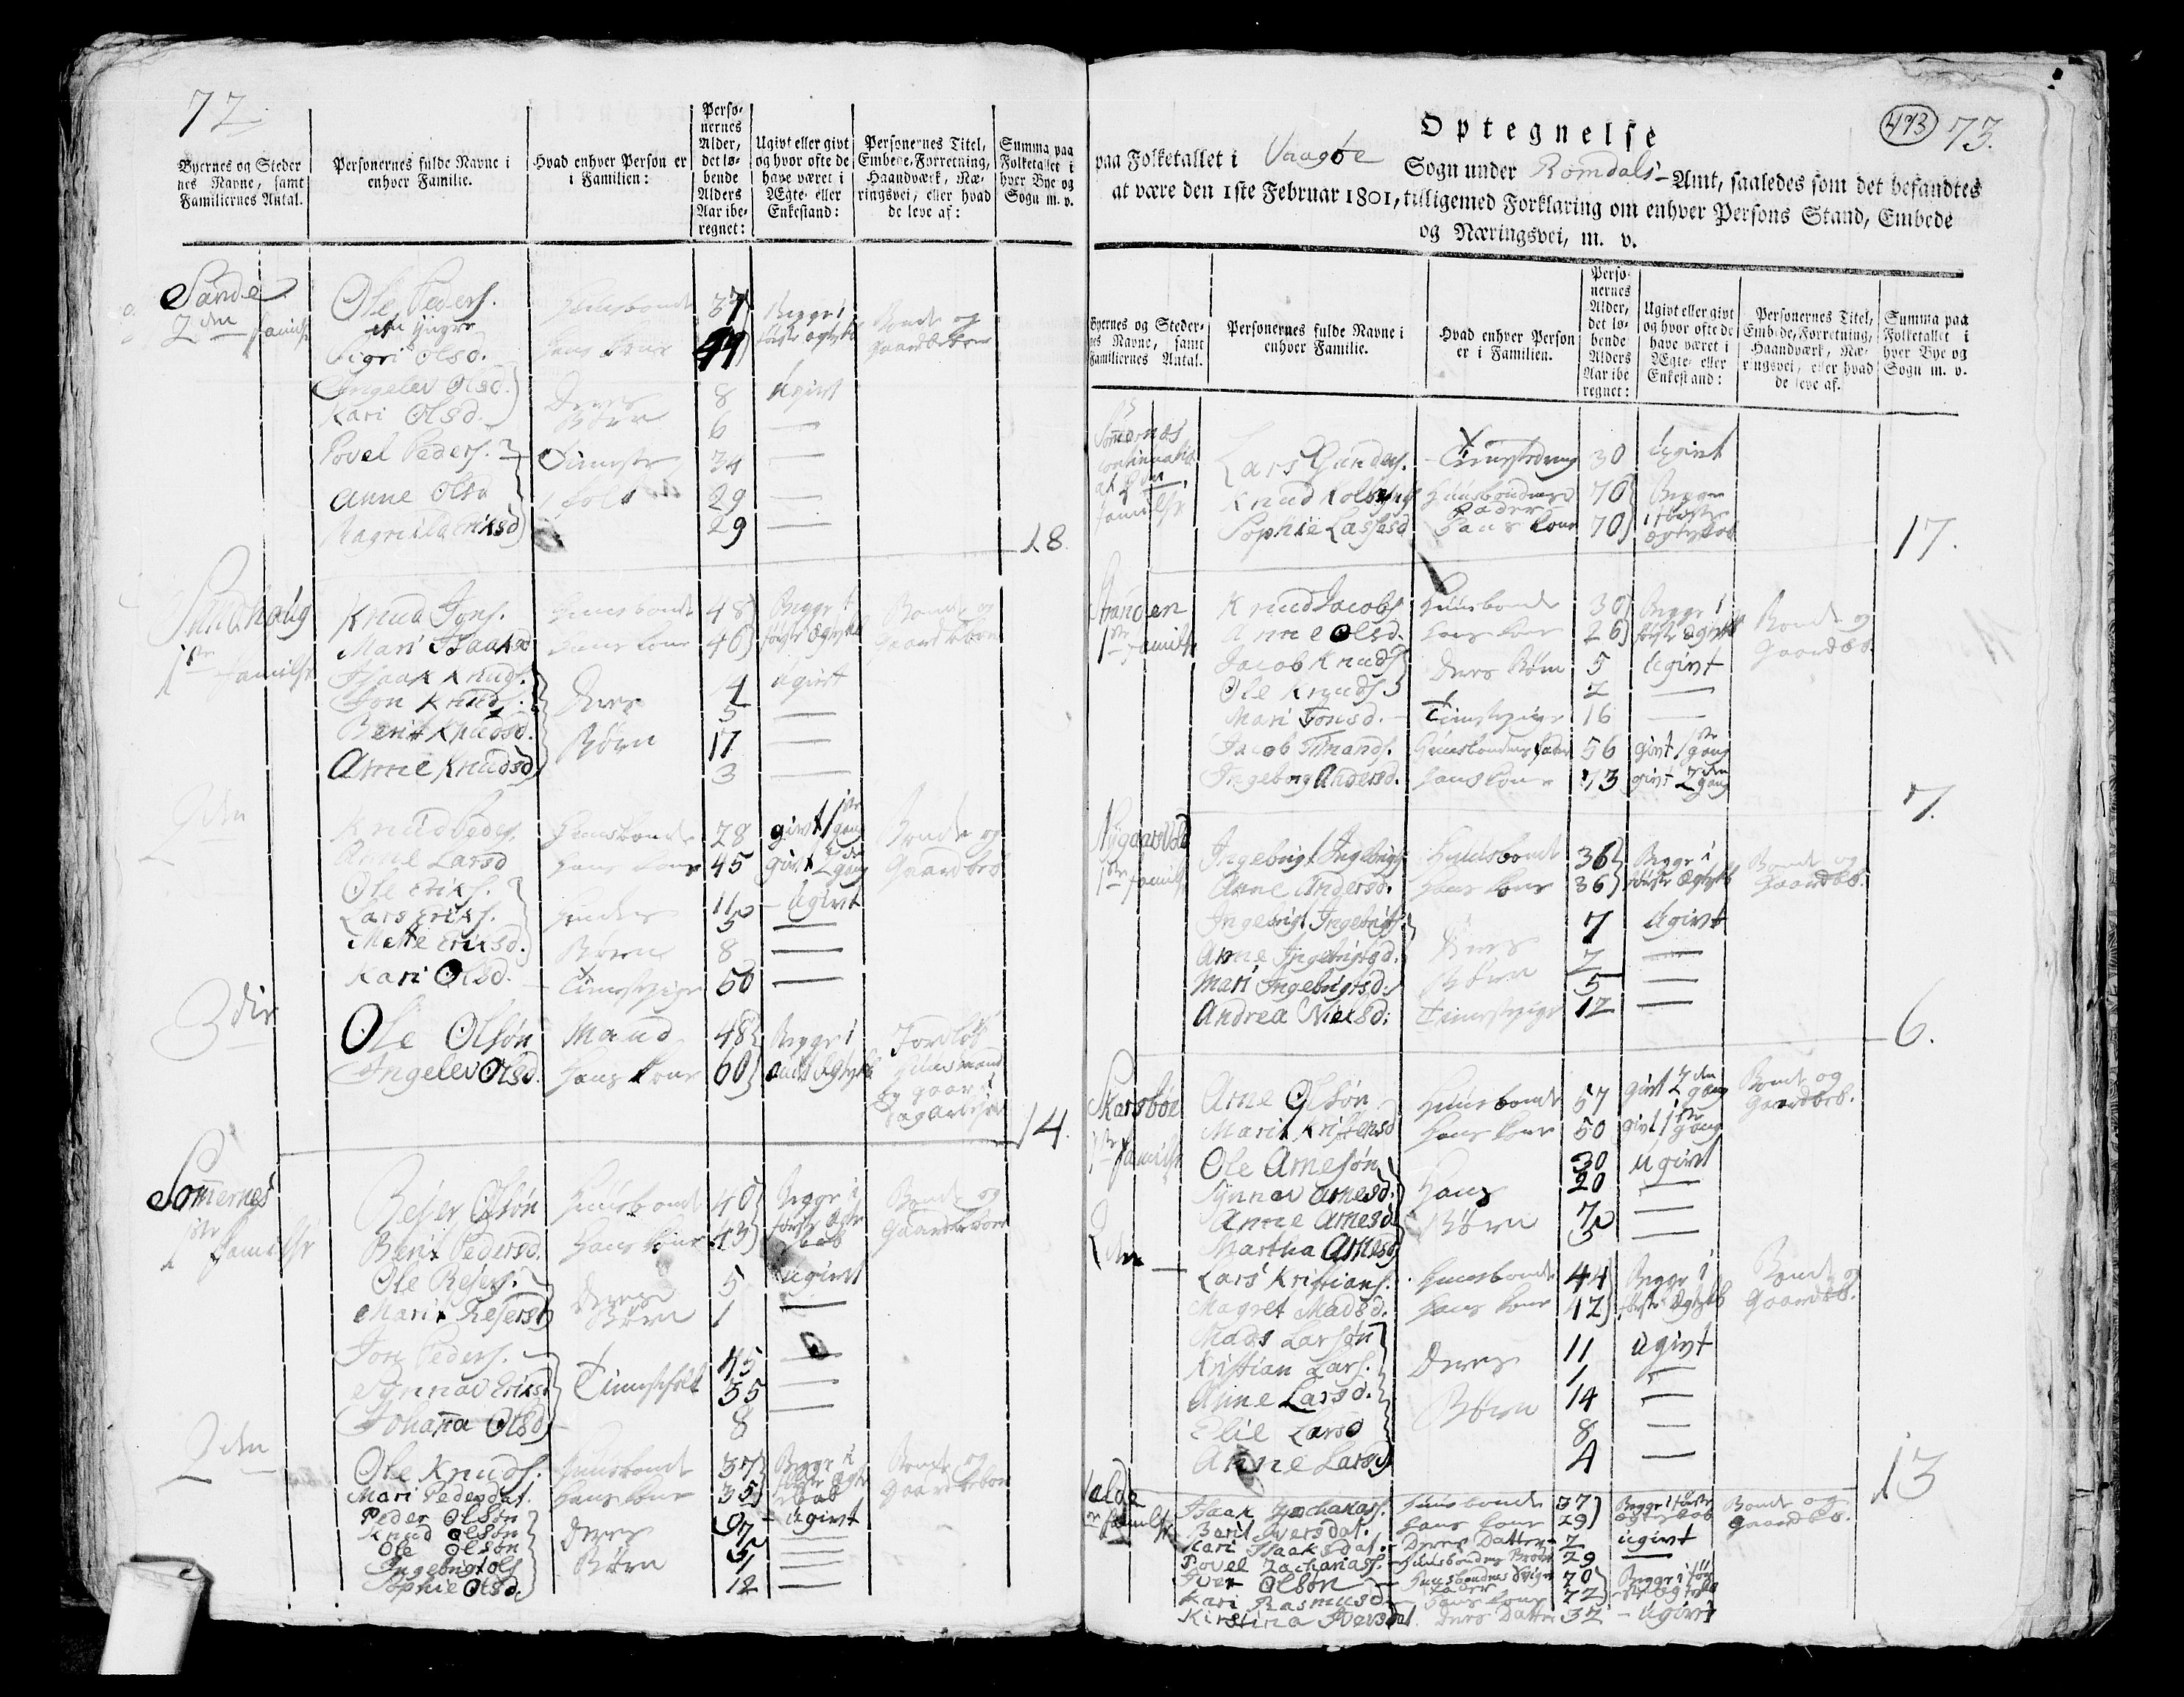 72
Byernes og Steder
nes Navne, samt
Familiernes Antal.
Personernes fulde Navne i
enhver Familie.
Hvad enhver Person er
i Familien:
Perso-
nernes
Alder,
det lø-
bende
Alders
Aar ibe-
regnet:
Ugivt eller givt
og hvor ofte de
have været i
Ægte- eller
Enkestand:
Personernes Titel,
Embede, Forretning,
Haandværk, Næ-
ringsvei, eller hvad
de leve af:
Summa paa
Folketallet i
hver Bye og
Sogn m. v.
Sande Ole Peders. Huusbonde 37 Begge i
2den Familie den yngre første Bonde og
Sigri Olsd. hans Kone Gaardbeboer
Ingelev Olsd. Deres 8 ugivt
Kari Olsd. Børn 6 —
Povel Peders. Tieneste 34 —
Anne Olsd folk 29 —
Magnilda Eriksd 29 —
18.
Sandhaug Knud Jons. Huusbonde 48 Begge i Bonde og
1ste Familie Mari Isaaksd hans Kone 40 første Ægtesk. Gaardbeboer
Isaak Knuds. Deres 4 ugivt
Jon Knuds. 5 —
Berit Knudsd. Børn 17 —
Anne Knudsd 3 —
2den Knud Peders. Huusbonde 28 givt 1ste gang Bonde og
Anne Larsd hans Kone 45 givt 2den gang Gaardbeb.
Ole Eriks. Hendes 11 ugivt
Lars Eriks. 5 —
Mette Eriksd. Børn 8 —
Kari Olsd. Tienestepige 50 —
3die Ole Olsøn Mand 48 Begge i Jordløs
Ingelev Olsd. hans Kone 60 andet Ægtesk. Huusmand
og gaar i
Dagarbeide
14.
Sommernes Rejer Olsøn Huusbonde 40 Begge i Bonde og
1ste Familie Berit Pedersd. hans Kone 43 første Ægteskab Gaardbeboer
Ole Rejers. Deres 5 ugivt
Marit Rejersd Børn 1 —
Jon Peders. 45 —
Synnav Eriksd Tienestefolk 35 —
Johanna Olsd 8 —
2den Ole Knuds. Huusbonde 37 Begge i Bonde og
Mari Pedersdat. hans Kone 35 første Ægteskab Gaardbeboer
Peder Olsøn 9 ugivt
Knud Olsøn Deres 7 —
Ole Olsøn 5 —
Ingebrigt Ols Børn 1 —
Sophie Olsd. 12 —
473 73.
Optegnelse
paa Folketallet i Vaagøe Sogn under Romdals- Amt, saaledes som det befandtes
at være den 1ste Februar 1801, tilligemed Forklaring om enhver Persons Stand, Embede
og Næringsvei, m. v.
Byernes og Steder-
nes Navne, samt
Familiernes Antal.
Personernes fulde Navne i
enhver Familie.
Hvad enhver Person
er i Familien.
Perso-
nernes
Alder,
det lø-
bende
Alders
Aar ibe
regnet:
Ugivt eller givt
og hvor ofte de
have været i
Ægte- eller
Enkestand:
Personernes Titel,
Embede, Forretning,
Haandværk, Næ-
ringsvei, eller hvad
de leve af.
Summa paa
Folketallet i
hver Bye og
Sogn m. v.
Sommernes
continuatio Lars Gunders. Tienestedreng 30 ugivt
af 2den Knud Kolbjørns Huusbondens Fader 70 Begge
familie Sophie Lassesd hans Kone 70 i første Ægteskab
17.
Stranden Knud Jacobs Huusbonde 30 Begge i Bonde og
1ste Familie Anne Olsd. hans Kone 26 første Ægtesk. Gaardbeb
Jacob Knuds Deres Børn 5 ugivt
Ole Knuds. 2 —
Mari Jonsd. Tienestepige 16 —
Jacob Tfinands. Huusbondens Fader 56 givt 1ste gang
Ingeborg Andersd. hans Kone 73 givt 2den gang
7.
Nygaarsvold Ingebrigt Ingebrigs Huusbonde 36 Begge i Bonde og
1ste Familie Anne Andersd. hans Kone 36 første Ægtesk. Gaardbeb.
Ingebrigt Ingebrigts. 7 ugivt
Anne Ingebrigtsd. Deres 2 —
Mari Ingebrigtsd. Børn 5 —
Andrea Nielsd: Tienestepige 12 —
6.
Skarsbøe Arne Olsøn Huusbonde 57 givt 2den gang Bonde og
1ste Familie Marit Kristensd hans Kone 50 givt 1ste gang Gaardbeb.
Ole Arnesøn 30 ugivt
Synnav Arnesd. Hans 20 —
Anne Arnesd. Børn —
Martha Arnesd —
2den — Lars Kristians. Huusbonde 44 Begge i Bonde og
Magret Madsd. hans Kone 42 første Ægtesk. Gaardbeb.
Mads Larsøn 11 ugivt
Kristian Lars. Deres 1 —
Anne Larsd. 14 —
Elie Larsd Børn 8 —
Anne Larsd 4 —
13
Isaak Zachariass. Huusbonde 37 Begge i første Bonde og
Familie Barit Iversdat. hans Kone 29 Ægteskab Gaardbeb.
Kari Isaaksdat. Deres Datter 2 ugivt
Povel Zachariass. Huusbondens Broder 29 —
Iver Olsøn Huusbondens Sviger Fader 70 Begge i før-
Kari Rasmusd. hans Kone 72 ste Ægtesk.
Kirstina Iversdat. Deres Datter 32 ugivt